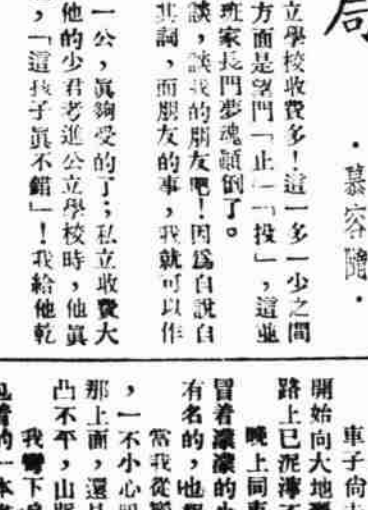 ・慕容隨・
立學校收費多！這一多一少之間
方面是望門「止」「投」，這並
班家長門夢魂顚倒了。
談，談我的朋友吧！因爲自說自
其詞，而朋友的事，我就可以作
一公，眞夠受的了；私立收費大
他的少君考進公立學校時，他眞
，「這孩子眞不錯」！我給他乾
車子尙
開始向大地
路上已泥濘不
晚上同事
冒着濛濛的
有名的，也
當我從
，一不小心
那上面，還
凸不平，山
我彎下
的一本